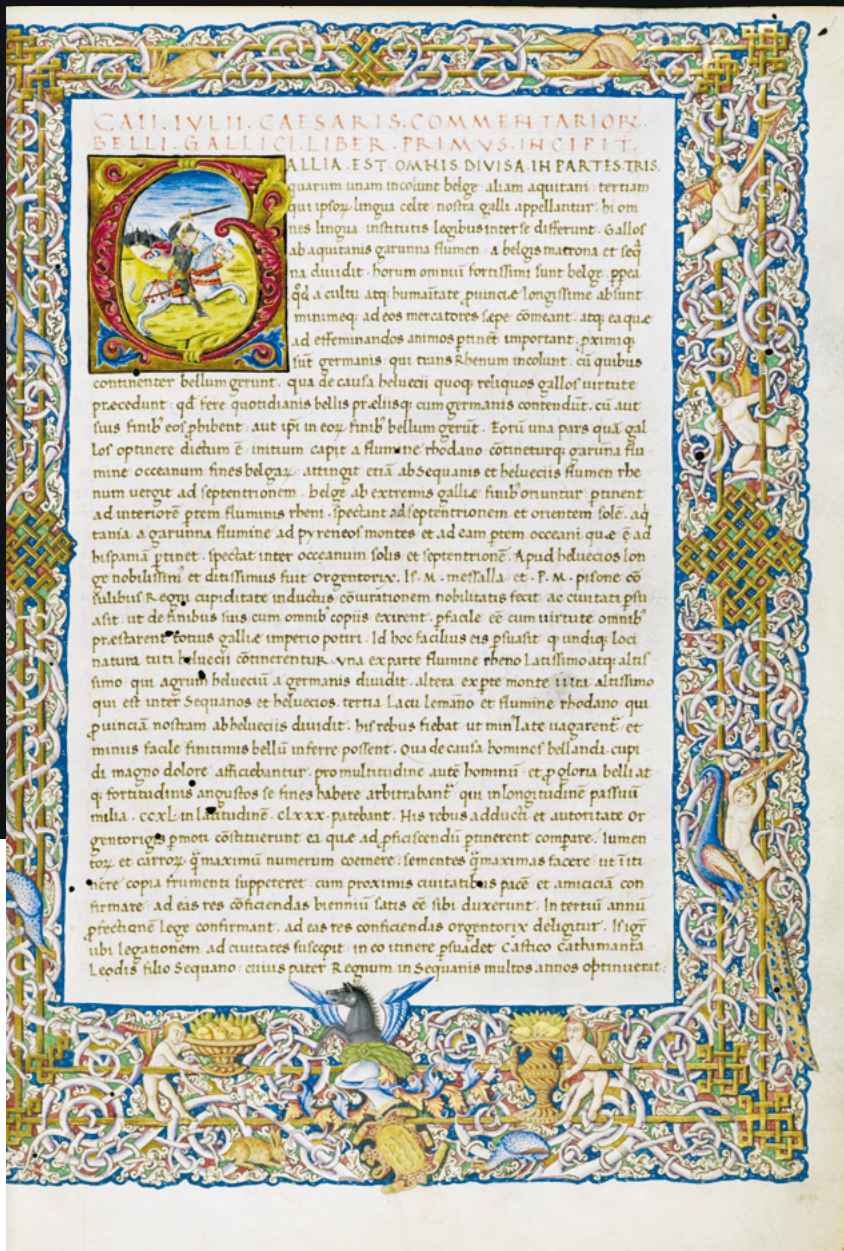 CAII.IVLII.CAESARIS.COMMENTARIOꝜ.
BELLI.GALLICI.LIBER.PRIMVS.INCIPIT.
GALLIA.EST.OMNIS.DIVISA.IN PARTES.TRIS.
quarum unam incolunt belge. aliam aquitani: tertiam
qui ipsoꝝ lingua celte nostra galli appellantur. hi om
nes lingua institutis legibus inter se differunt. Gallos
ab aquitanis garunna flumen. a belgis matrona et seq̄
na diuidit. horum omniū fortissimi sunt belge. ꝓpea
q̊d a cultu atq; humaītate ꝓuinciæ longissime absunt.
minimeq; ad eos mercatores sæpe cōmeant. atq; ea quæ
ad effeminandos animos ꝑtinēt important. ꝓximiq;
sūt germanis. qui trans Rhenum incolunt. cū quibus
continenter bellum gerunt. qua de causa heluecii quoq; reliquos gallos uirtute
præcedunt: qđ fere quotidianis bellis præliisq; cum germanis contendūt. cū aut
suis finib; eos ꝓhibent: aut ipi in eoꝝ finib; bellum gerūt. Eorū una pars quā gal
los optinere dictum ē. initium capit a flumine rhodano cōtineturq; garūna flu
mine occeanum fines belgaꝝ. attingit etiā ab Sequanis et helueciis flumen rhe
num uergit ad septentrionem. belge ab extremis galliæ finib; oriuntur ꝑtinent
ad interiorē ꝑtem fluminis rheni. spectant ad septentrionem et orientem solē. aq̇
tania a garunna flumine ad pyreneos montes et ad eam ꝑtem occeani quæ ē ad
hispaniā ꝑtinet. spectat inter occeanum solis et septentrionē. Apud heluecios lon
ge nobilissim; et ditissimus fuit orgentorix. Is. M. messalla et. P. M. pisone cō
sulibus Regni cupiditate inductus cōiurationem nobilitatis fecit ac ciuitati ꝑsu
asit ut de finibus suis cum omnib; copiis exirent. ꝑfacile eē cum uirtute omnib;
præstarent totius galliæ imperio potiri. Id hoc facilius eis ꝑsuasit q undiq; loci
natura tuti heluecii cōtinerentur. una ex parte flumine rheno latissimo atq; altis
simo qui agrum helueciū a germanis diuidit. altera ex ꝑte monte iura altissimo
qui est inter Sequanos et heluecios. tertia Lacu lemāno et flumine rhodano qui
ꝓuinciā nostram ab heluecüs diuidit. his rebus fiebat ut min; late uagarent̄. et
minus facile finitimis bellū inferre possent. Qua de causa homines bellandi cupi
di magno dolore afficiebantur. pro multitudine autē hominū. et ꝓ gloria belli at
q; fortitudinis angustos se fines habere arbitrabant̄ qui in longitudinē passuū
milia. ccxL. in latitudinē. cLxxx. patebant. His rebus adducti et autoritate or
gentorigis ꝑmoti cōstituerunt ea quæ ad ꝓficiscendū ꝑtinerent compare. Iumen
toꝝ et carroꝝ q̄ maximū numerum coemere. sementes q̄ maximas facere ut ī iti
nere copia frumenti suppeteret: cum proximis ciuitatibus pacē et amiciciā con
firmare. ad eas res conficiendas bienniū satis eē sibi duxerunt. In tertiū annū
ꝓfectionē lege confirmant. ad eas res conficiendas orgentorix deligitur. Is igr̄
ubi legationem ad ciuitates suscepit in eo itinere ꝑsuadet Castico Cathamanta
Leodis filio Sequano: cuius pater Regnum in Sequanis multos annos optinuerat: